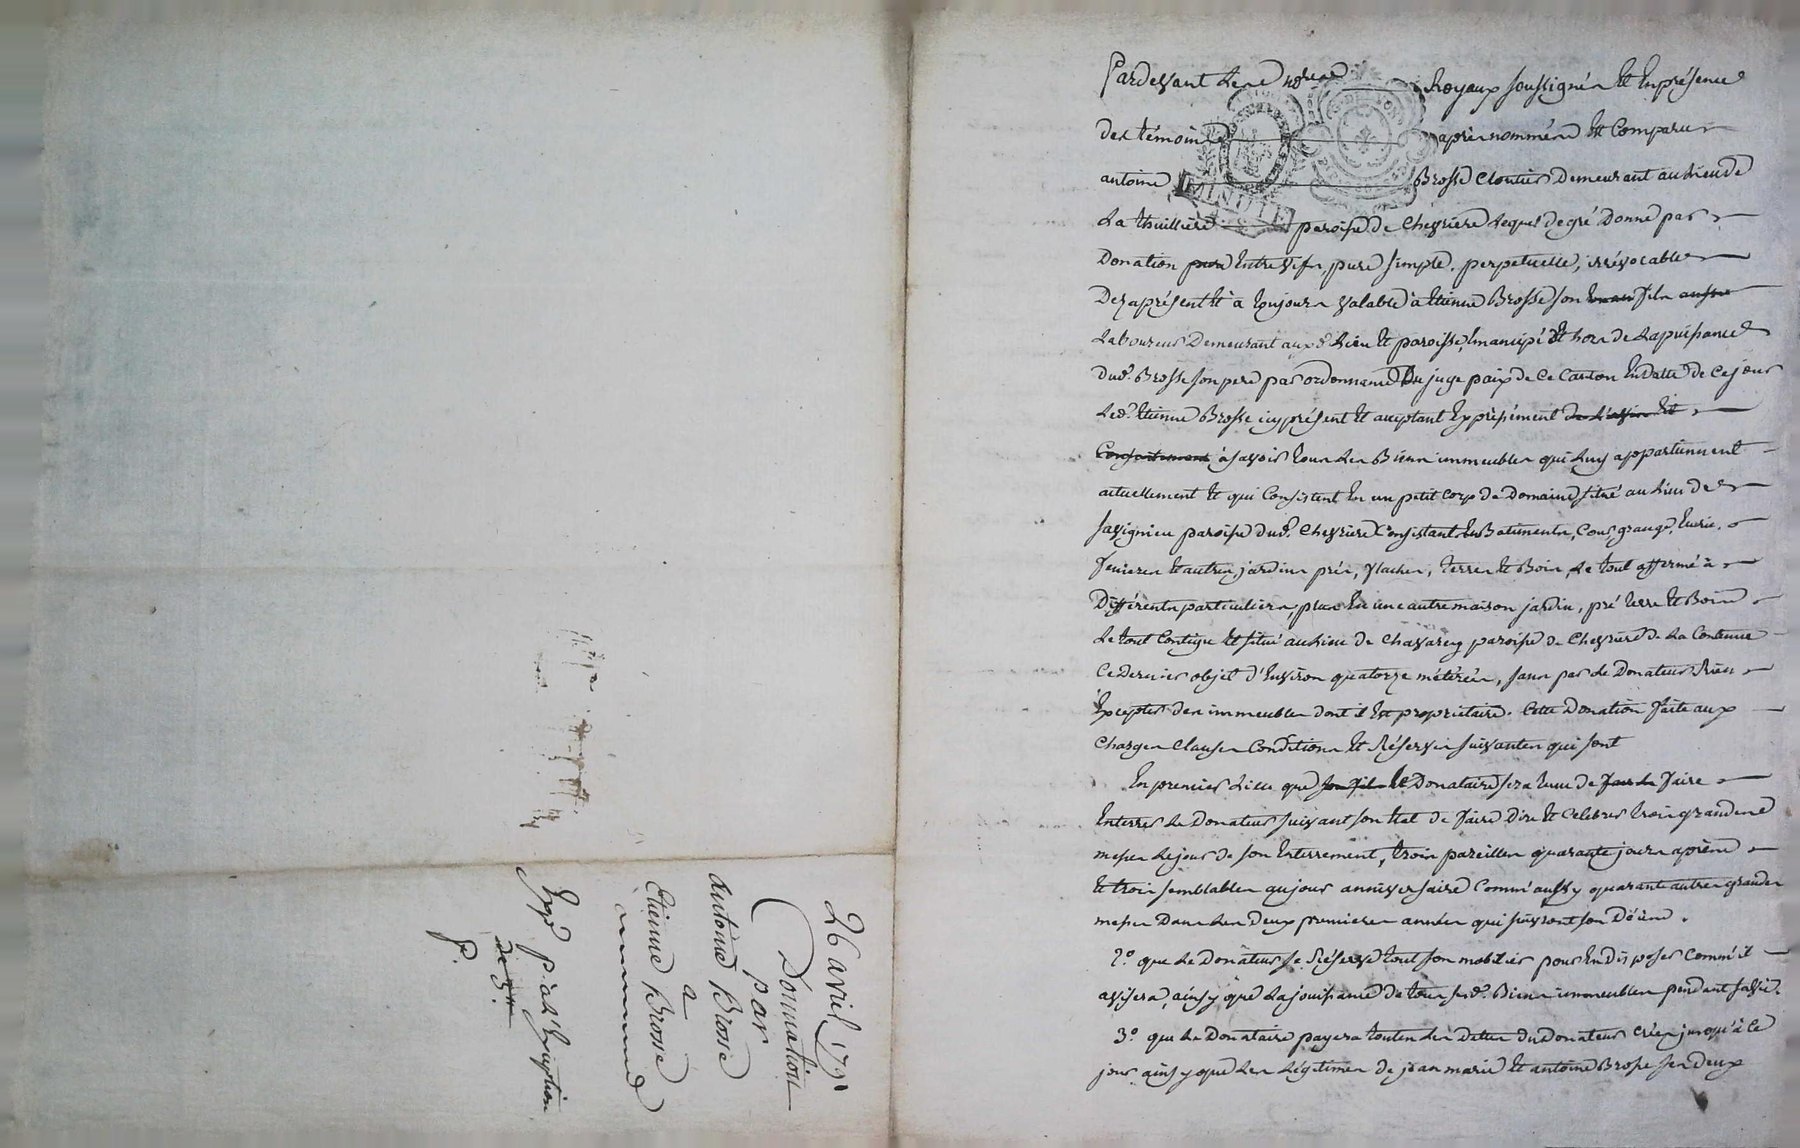 26 avril 1791
Donnation
par
Antoine Brosse
a
Etienne Brosse
Expd
P.
Pardevant Les nores Royaux soussignés Et En présence
des témoins après nommés Est Comparu
antoine Brosse Cloutier Demeurant au Lieu de
La thuilliere paroisse de Chevriere Lequel de gré Donne par
Donation pure Entre vifs, pure simple, perpetuelle, irrévocable
Dez aprésent Et à toujours valable à Etienne Brosse son fils
Laboureur Demeurant aux d. Lieu Et paroisse, Emancipé Et hors de La puissance
dud. Brosse son pere par ordonnance Du juge paix de Ce Canton En datte de Ce jour
Led. Etienne Brosse icy présent Et acceptant Expressément
à savoir tous Les Biens immeubles qui Luy appartiennent
actuellement Et qui Consistent En un petit corp de Domaine situé au Lieu de
Savignieu paroisse dud. Chevriere Consistant En Batiments, Cour, grange, Eurie,
fenieres Et autres, jardins prés, Terres Et Bois, Le tout affermé à
Différents particuliers, plus En une autre maison jardin, pré terre Et Bois
Le tout Contigu Et situé au Lieu de Chavarey paroisse de Chevriere de La Contenue
Ce dernier objet d'Environ quatorze métérées, sans par Le Donateur Rien
Excepter des immeubles dont il Est proprietaire. Cette Donation faite aux
Charges Clauses Conditions Et Réserves suivantes qui sont
En premier Lieu que son fils Le Donataire sera tenu de faire
Enterrer Le Donateur suivant son Etat de faire Dire Et Celebrer trois grandes
messes Le jour de son Enterrement, trois pareilles quarante jours après
Et trois semblables au jour anniversaire Comm'aussy quarant autres grandes
messes Dans Les Deux premieres années qui suivront son Décès.
2.o que Le Donateur se Réserve tout son mobilier pour En disposer Comm'il
avisera, ainsy que La jouissance de tous sesd. Biens immeubles pendant sa vie.
3.o que Le Donataire payera toutes Les Dettes du Donateur Crées jusqu'à Ce
jour ainsy que Les Légitimes de jean marie Et antoine Brosse ses deux
MINUTE